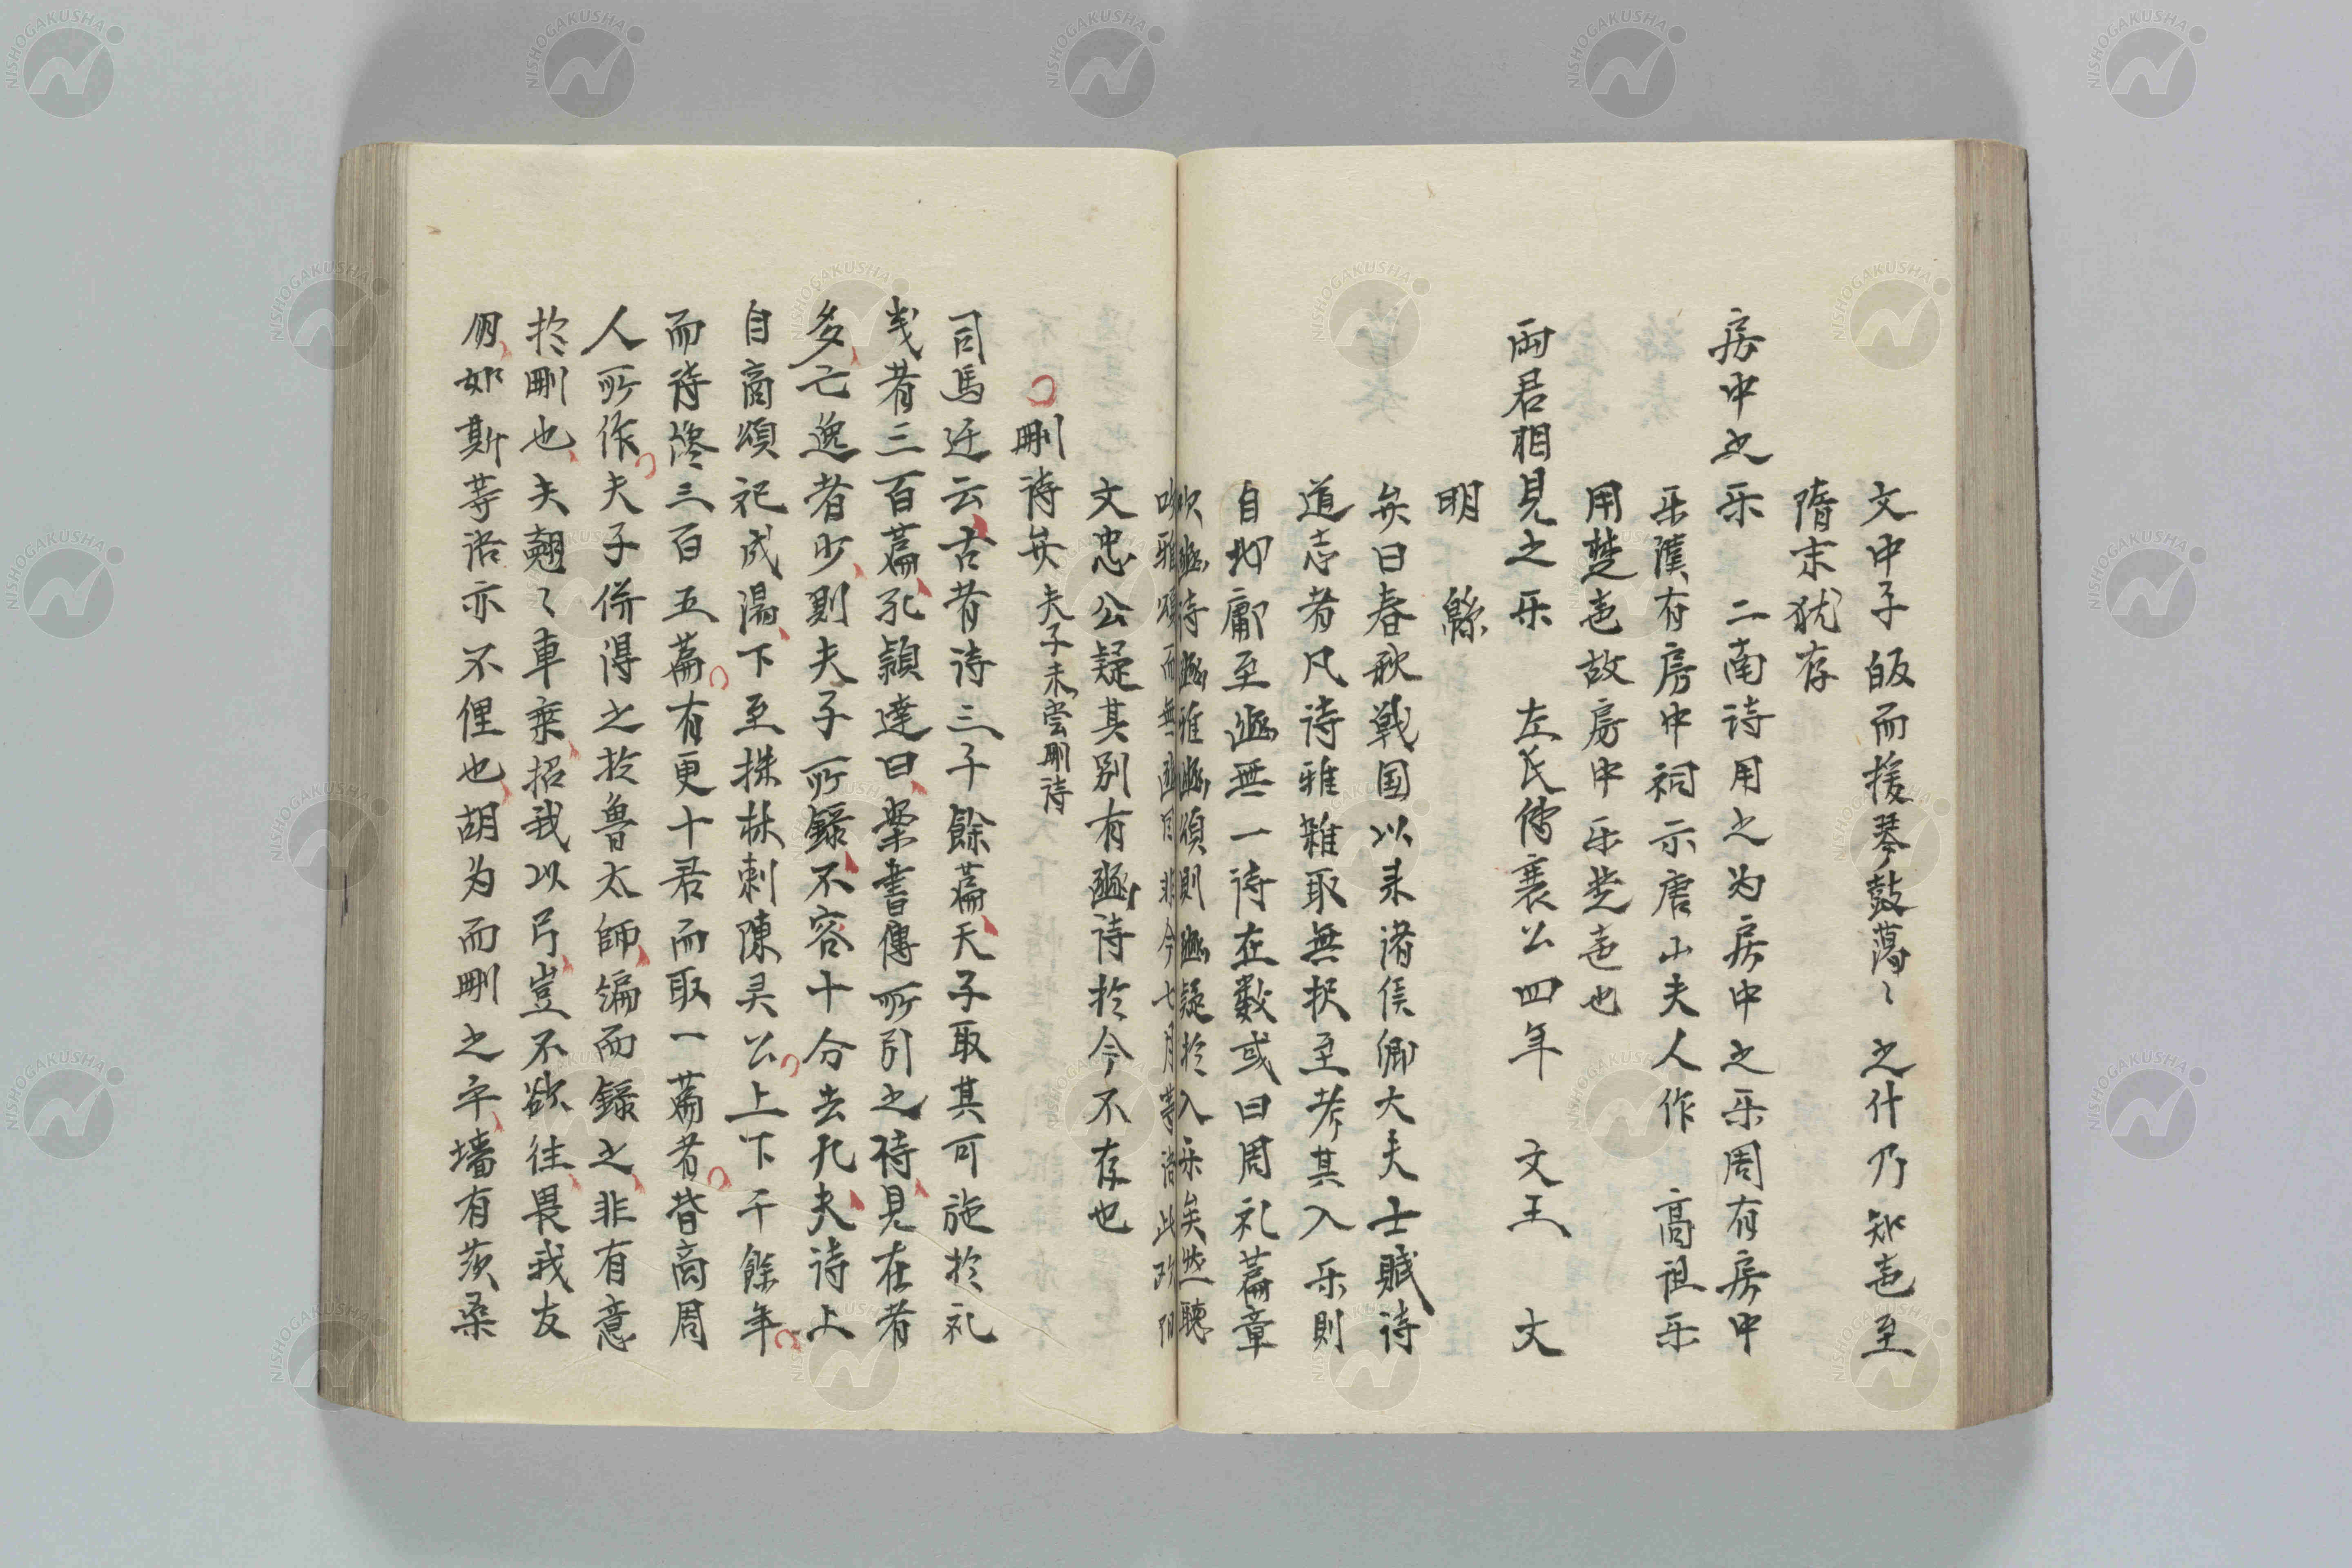 文中子皈而援琴鼓蕩〻之什乃知㐵至
隋末犹存
房中之乐　二南詩用之为房中之乐周有房中
乐漢有房中祠示唐山夫人作　高祖乐
用楚㐵故房中乐楚㐵也
両君相見之乐　左氏傳襄公四年　文王　文
明　緜
矣曰春秋戦国以来诸侯卿大夫士賦诗
道志者凡诗雅雜取無択至考其入乐則
自邶鄘至豳無一诗在数或曰周礼篇章
吹豳诗豳雅豳頌則豳疑於入乐矣然聴
雅頌而無豳目非今七月等诗此改
文忠公疑其别有豳诗於今不存也
刪诗矣 夫子未尝刪诗
司馬迁云古者诗三千餘篇夫子取其可施於礼
義者三百篇孔頴達曰案書傳所引之诗見在者
多亡逸者少則夫子所録不容十分去九夫诗上
自商頌祀成湯下至株林刺陳灵公上下千餘年
而诗僅三百五篇有更十君而取一篇者皆商周
人所作夫子併得之於魯太師編而録之非有意
於刪也夫翹〻車乘招我以弓豈不欲往畏我友
朋如斯等语亦不俚也胡为而刪之乎墻有茨桑